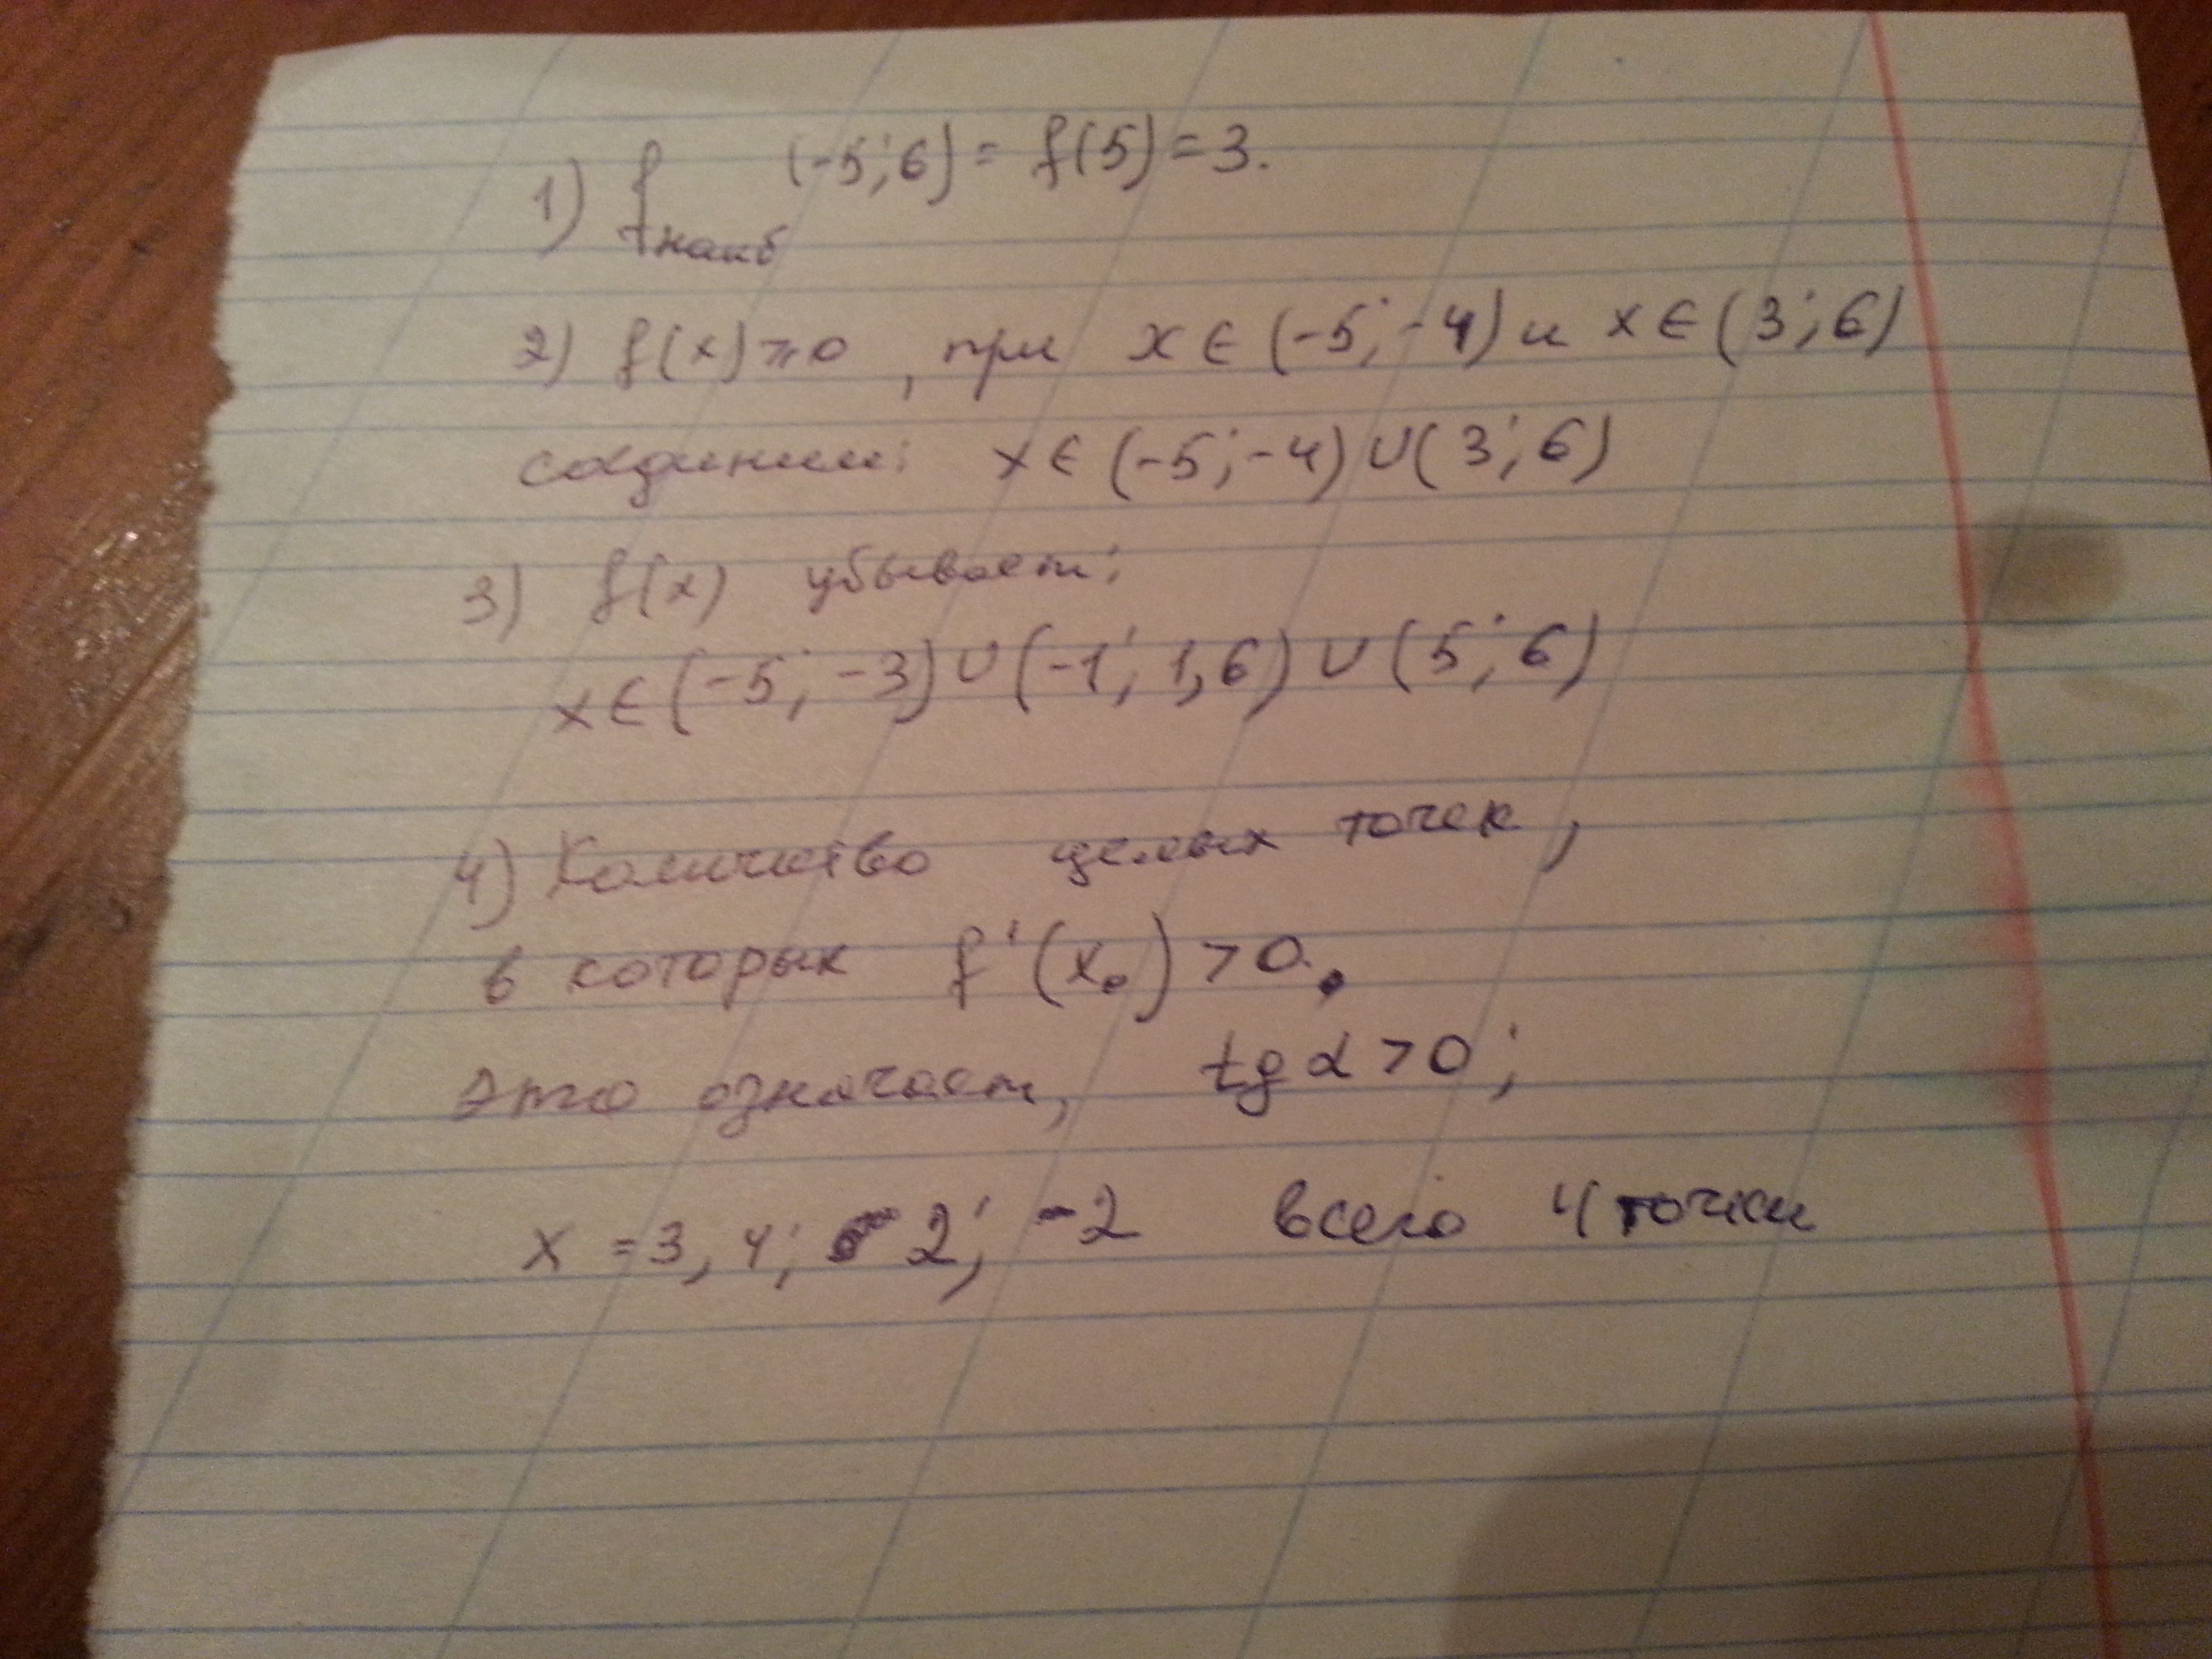 1) f наиб (-5; 6) = f(5) = 3.
2) f(x) ⩾ 0, при x ∈ (-5; -4) и x ∈ (3; 6)
соединим: x ∈ (-5; -4) ∪ (3; 6)
3) f(x) убывает:
x ∈ (-5; -3) ∪ (-1; 1,6) ∪ (5; 6)
4) Количество целых точек,
в которых f'(x₀) > 0.
это означает, tg α > 0;
x = 3, 4; 2; -2 всего 4 точки